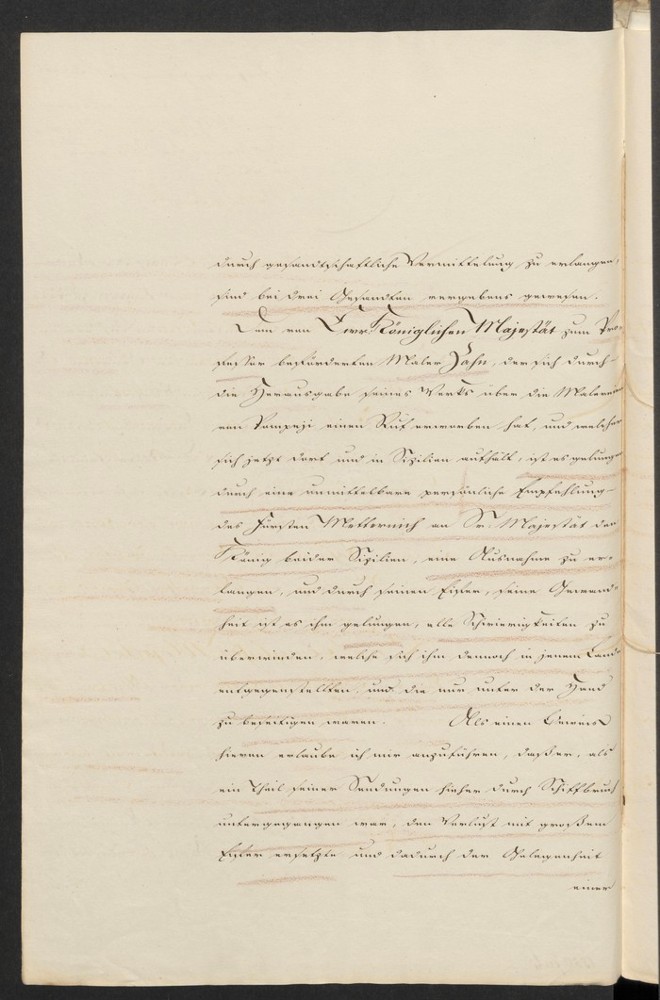 durch gesandtschaftliche Vermittelung zu erlangen,
sind bei drei Gesandten vergebens gewesen.
Dem von Ewr Königlichen Majestät zum Pro-
fessor beförderten Maler Zahn, der sich durch
die Herausgabe seines Werks über die Malereien
von Pompeji einen Ruf erworben hat, und welcher
sich jetzt dort und in Sizilien aufhält, ist es gelungen
durch eine unmittelbare persönliche Empfehlung
des Fürsten Metternich an Sr. Majestät den
König beider Sizilien, eine Ausnahme zu er-
langen, und durch seinen Eifer, seine Gewand-
heit ist es ihm gelungen, alle Schwierigkeiten zu
überwinden, welche sich ihm dennoch in jenem Lande
entgegenstellten, und die nur unter der Hand
zu beseitigen waren. Als einen Beweis
hievon erlaube ich mir anzuführen, daß er, als
ein Theil seiner Sendungen hieher durch Schiffbruch
untergegangen war, den Verlust mit großem
Eifer ersetzte und dadurch der Gelegenheit
einer